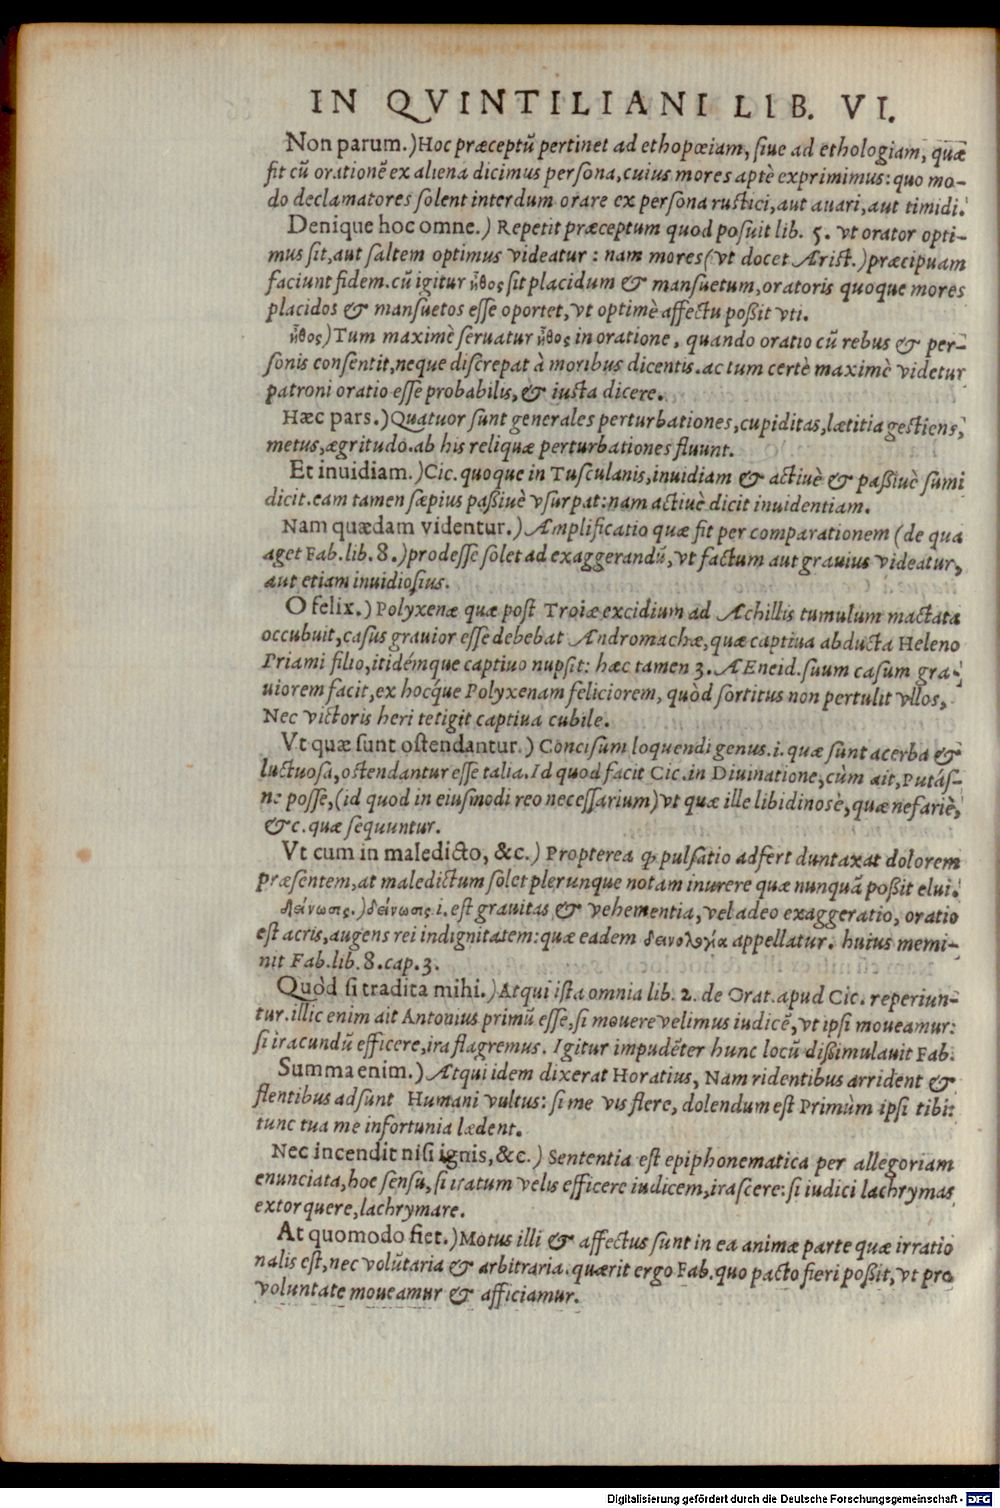 IN QVINTILIANI LIB. VI.
Non parum.) Hoc præceptū pertinet ad ethopœiam, siue ad ethologiam, quæ
fit cū orationē ex aliena dicimus persona, cuius mores aptè exprimimus: quo mo-
do declamatores solent interdum orare ex persona rustici, aut auari, aut timidi.
Denique hoc omne.) Repetit præceptum quod posuit lib. 5. vt orator opti-
mus sit, aut saltem optimus videatur : nam mores (vt docet Arist.) præcipuam
faciunt fidem. cū igitur ἦθος sit placidum & mansuetum, oratoris quoque mores
placidos & mansuetos esse oportet, vt optimè affectu poßit vti.
ἦθος) Tum maximè seruatur ἦθος in oratione, quando oratio cū rebus & per-
sonis consentit, neque discrepat à moribus dicentis. ac tum certè maximè videtur
patroni oratio esse probabilis, & iusta dicere.
Hæc pars.) Quatuor sunt generales perturbationes, cupiditas, lætitia gestiens,
metus, ægritudo. ab his reliquæ perturbationes fluunt.
Et inuidiam.) Cic. quoque in Tusculanis, inuidiam & actiuè & paßiuè sumi
dicit. eam tamen sæpius paßiuè vsurpat: nam actiuè dicit inuidentiam.
Nam quædam videntur.) Amplificatio quæ fit per comparationem (de qua
aget Fab. lib. 8.) prodesse solet ad exaggerandū, vt factum aut grauius videatur,
aut etiam inuidiosius.
O felix.) Polyxenæ quæ post Troiæ excidium ad Achillis tumulum mactata
occubuit, casus grauior esse debebat Andromachæ, quæ captiua abducta Heleno
Priami filio, itidémque captiuo nupsit: hæc tamen 3. AEneid. suum casum gra-
uiorem facit, ex hocq́ue Polyxenam feliciorem, quòd sortitus non pertulit vllos,
Nec victoris heri tetigit captiua cubile.
Vt quæ sunt ostendantur.) Concisum loquendi genus. i. quæ sunt acerba &
luctuosa, ostendantur esse talia. Id quod facit Cic. in Diuinatione, cùm ait, Putás-
ne posse, (id quod in eiusmodi reo necessarium) vt quæ ille libidinosè, quæ nefariè,
&c. quæ sequuntur.
Vt cum in maledicto, &c.) Propterea ꝙ pulsatio adfert duntaxat dolorem
præsentem, at maledictum solet plerunque notam inurere quæ nunquā poßit elui.
δείνωσις.) δείνωσις. i. est grauitas & vehementia, vel adeo exaggeratio, oratio
est acris, augens rei indignitatem: quæ eadem δεινολογία appellatur. huius memi-
nit Fab. lib. 8. cap. 3.
Quòd si tradita mihi.) Atqui ista omnia lib. 2. de Orat. apud Cic. reperiun-
tur. illic enim ait Antonius primū esse, si mouere velimus iudicē, vt ipsi moueamur:
si iracundū efficere, ira flagremus. Igitur impudēter hunc locū dißimulauit Fab.
Summa enim.) Atqui idem dixerat Horatius, Nam ridentibus arrident &
flentibus adsunt Humani vultus: si me vis flere, dolendum est Primùm ipsi tibi:
tunc tua me infortunia lædent.
Nec incendit nisi ignis, &c.) Sententia est epiphonematica per allegoriam
enunciata, hoc sensu, si iratum velis efficere iudicem, irascere: si iudici lachrymas
extorquere, lachrymare.
At quomodo fiet.) Motus illi & affectus sunt in ea animæ parte quæ irratio
nalis est, nec volūtaria & arbitraria. quærit ergo Fab. quo pacto fieri poßit, vt pro
voluntate moueamur & afficiamur.
Digitalisierung gefördert durch die Deutsche Forschungsgemeinschaft - DFG